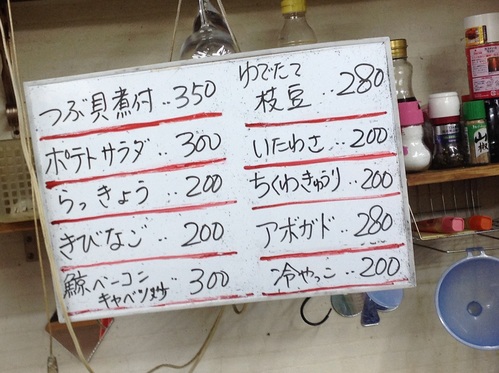 つぶ貝煮付‥350
ポテトサラダ‥300
らっきょう‥200
きびなご‥200
鯨ベーコン
キャベツ炒め‥300
ゆでたて
枝豆‥280
いたわさ‥200
ちくわきゅうり‥200
アボガド‥280
冷やっこ‥200